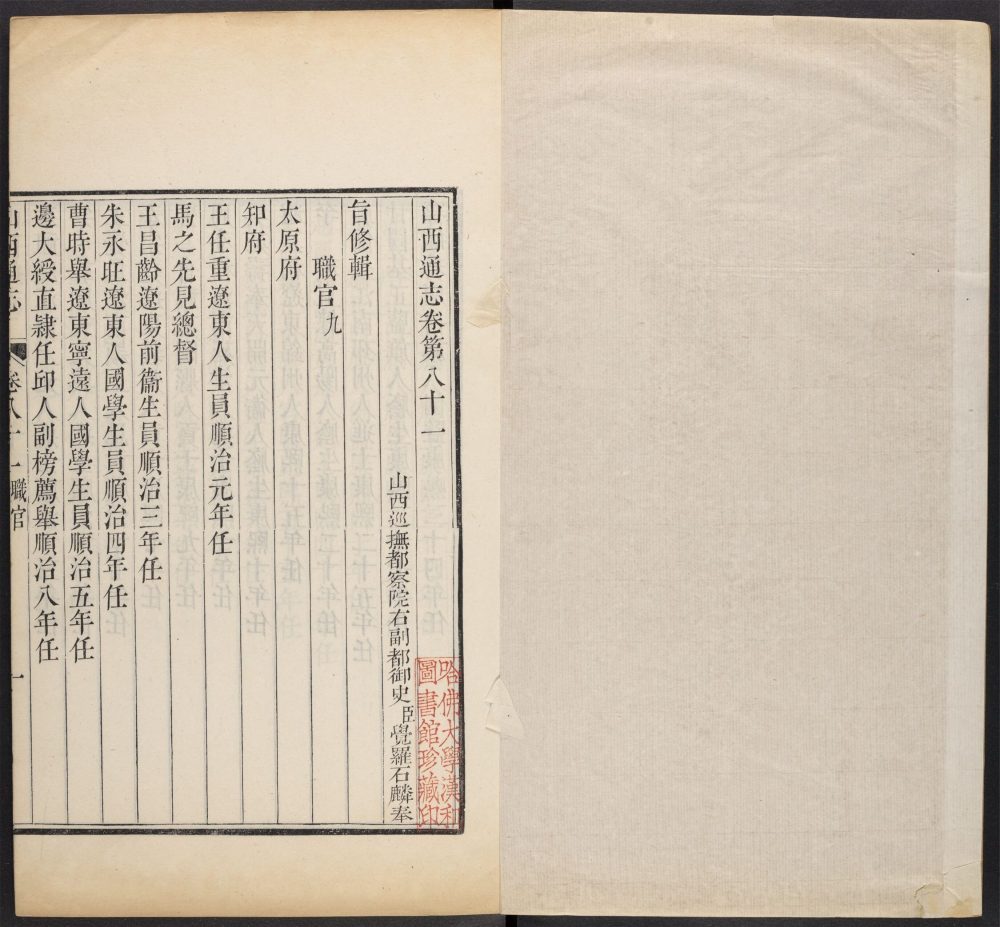 山西通志卷第八十一
山西巡撫都察院右副都御史臣覺羅石麟奉
旨修輯
職官九
太原府
知府
王任重遼東人生員順治元年任
馬之先見總督
王昌齡遼陽前衞生員順治三年任
朱永旺遼東人國學生員順治四年任
曹時舉遼東寧遠人國學生員順治五年任
邊大綬直隷任邱人副榜薦舉順治八年任
山西通志
卷八十一職官
一
哈佛大學漢和
圖書館珍藏印